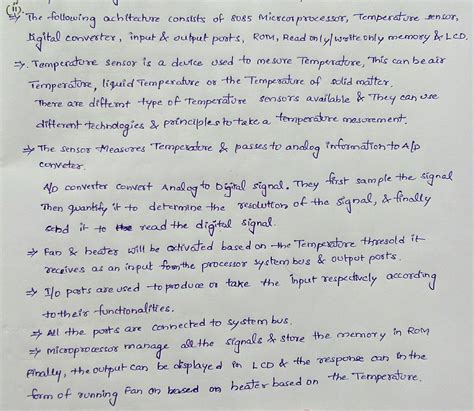 (ii).
⇒ The following achitecture consists of 8085 Microprocessor, Temperature sensor,
Digital converter, input & output ports, ROM, Read only/write only memory & LCD.
⇒. Temperature sensor is a device used to mesure Temperature, This can be air
Temperature, liquid Temperature or the Temperature of solid matter.
There are differnt type of Temperature sensors available & They can use
different technologies & principles to take a temperature mesurement.
⇒ The sensor Measures Temperature & passes to analog information to A/D
conveter.
A/D converter convert Analog to Digital signal. They first sample the signal
Then quantify it to determine the resolution of the signal, & finally
send it to the read the digital signal.
⇒ Fan & heater will be activated based on the Temperature thresold it
receives as an input from the processor system bus & output ports.
⇒ I/o ports are used to produce or take the input respectively according
to their functionalities.
⇒ All the ports are connected to system bus.
⇒ Microprocessor manage all the signals & store the memory in ROM
Finally, the output can be displayed in LCD & the response can in the
form of running Fan on based on heater based on the Temperature.